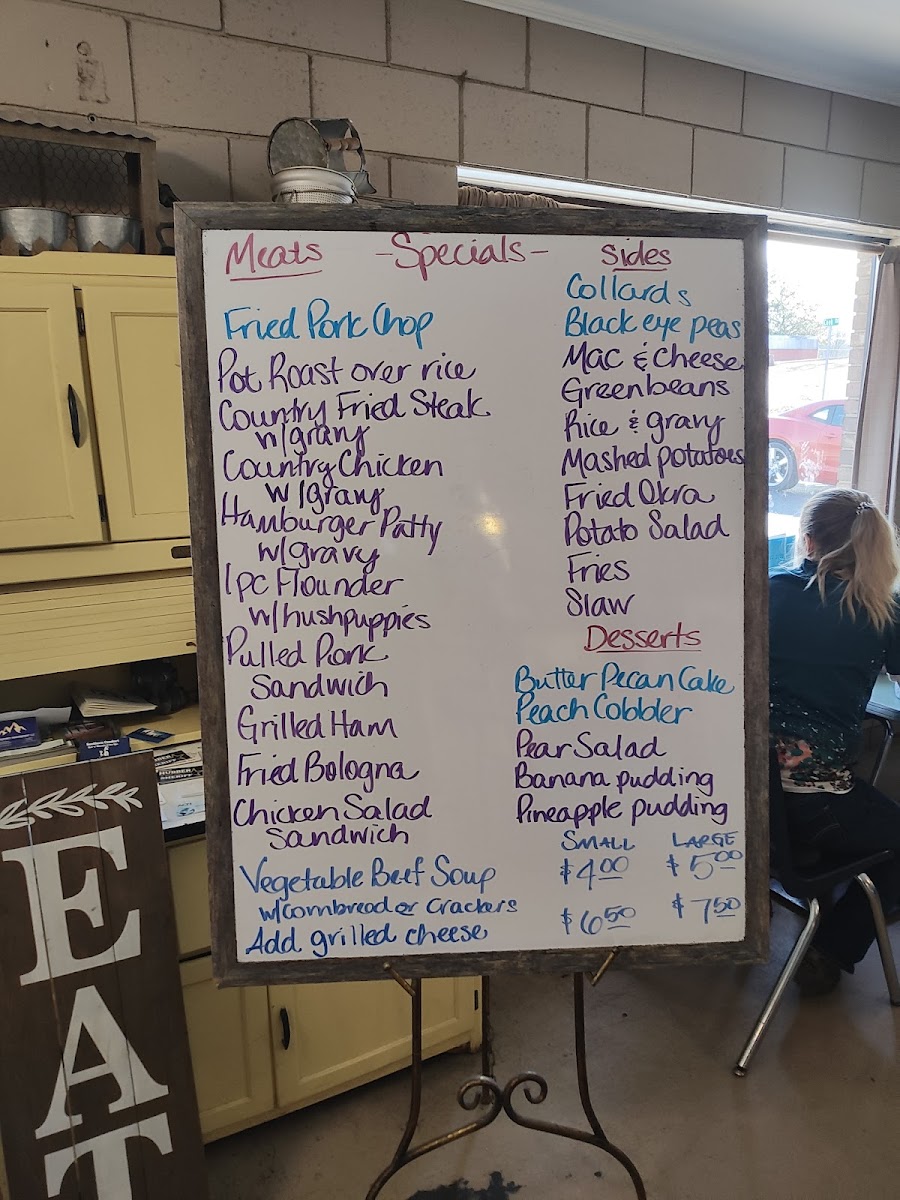 Meats
-Specials-
Sides
Fried Pork Chop
Pot Roast over rice
Country Fried Steak
w/gravy
Country Chicken
w/gravy
Hamburger Patty
w/gravy
1pc Flounder
w/hushpuppies
Pulled Pork
Sandwich
Grilled Ham
Fried Bologna
Chicken Salad
Sandwich
Collards
Black eye peas
Mac & cheese
Greenbeans
Rice & gravy
Mashed potatoes
Fried Okra
Potato Salad
Fries
Slaw
Desserts
Butter Pecan Cake
Peach Cobbler
Pear Salad
Banana pudding
Pineapple pudding
SMALL LARGE
Vegetable Beef Soup $4.00 $5.00
w/cornbread or crackers
Add grilled cheese $6.50 $7.50
EAT